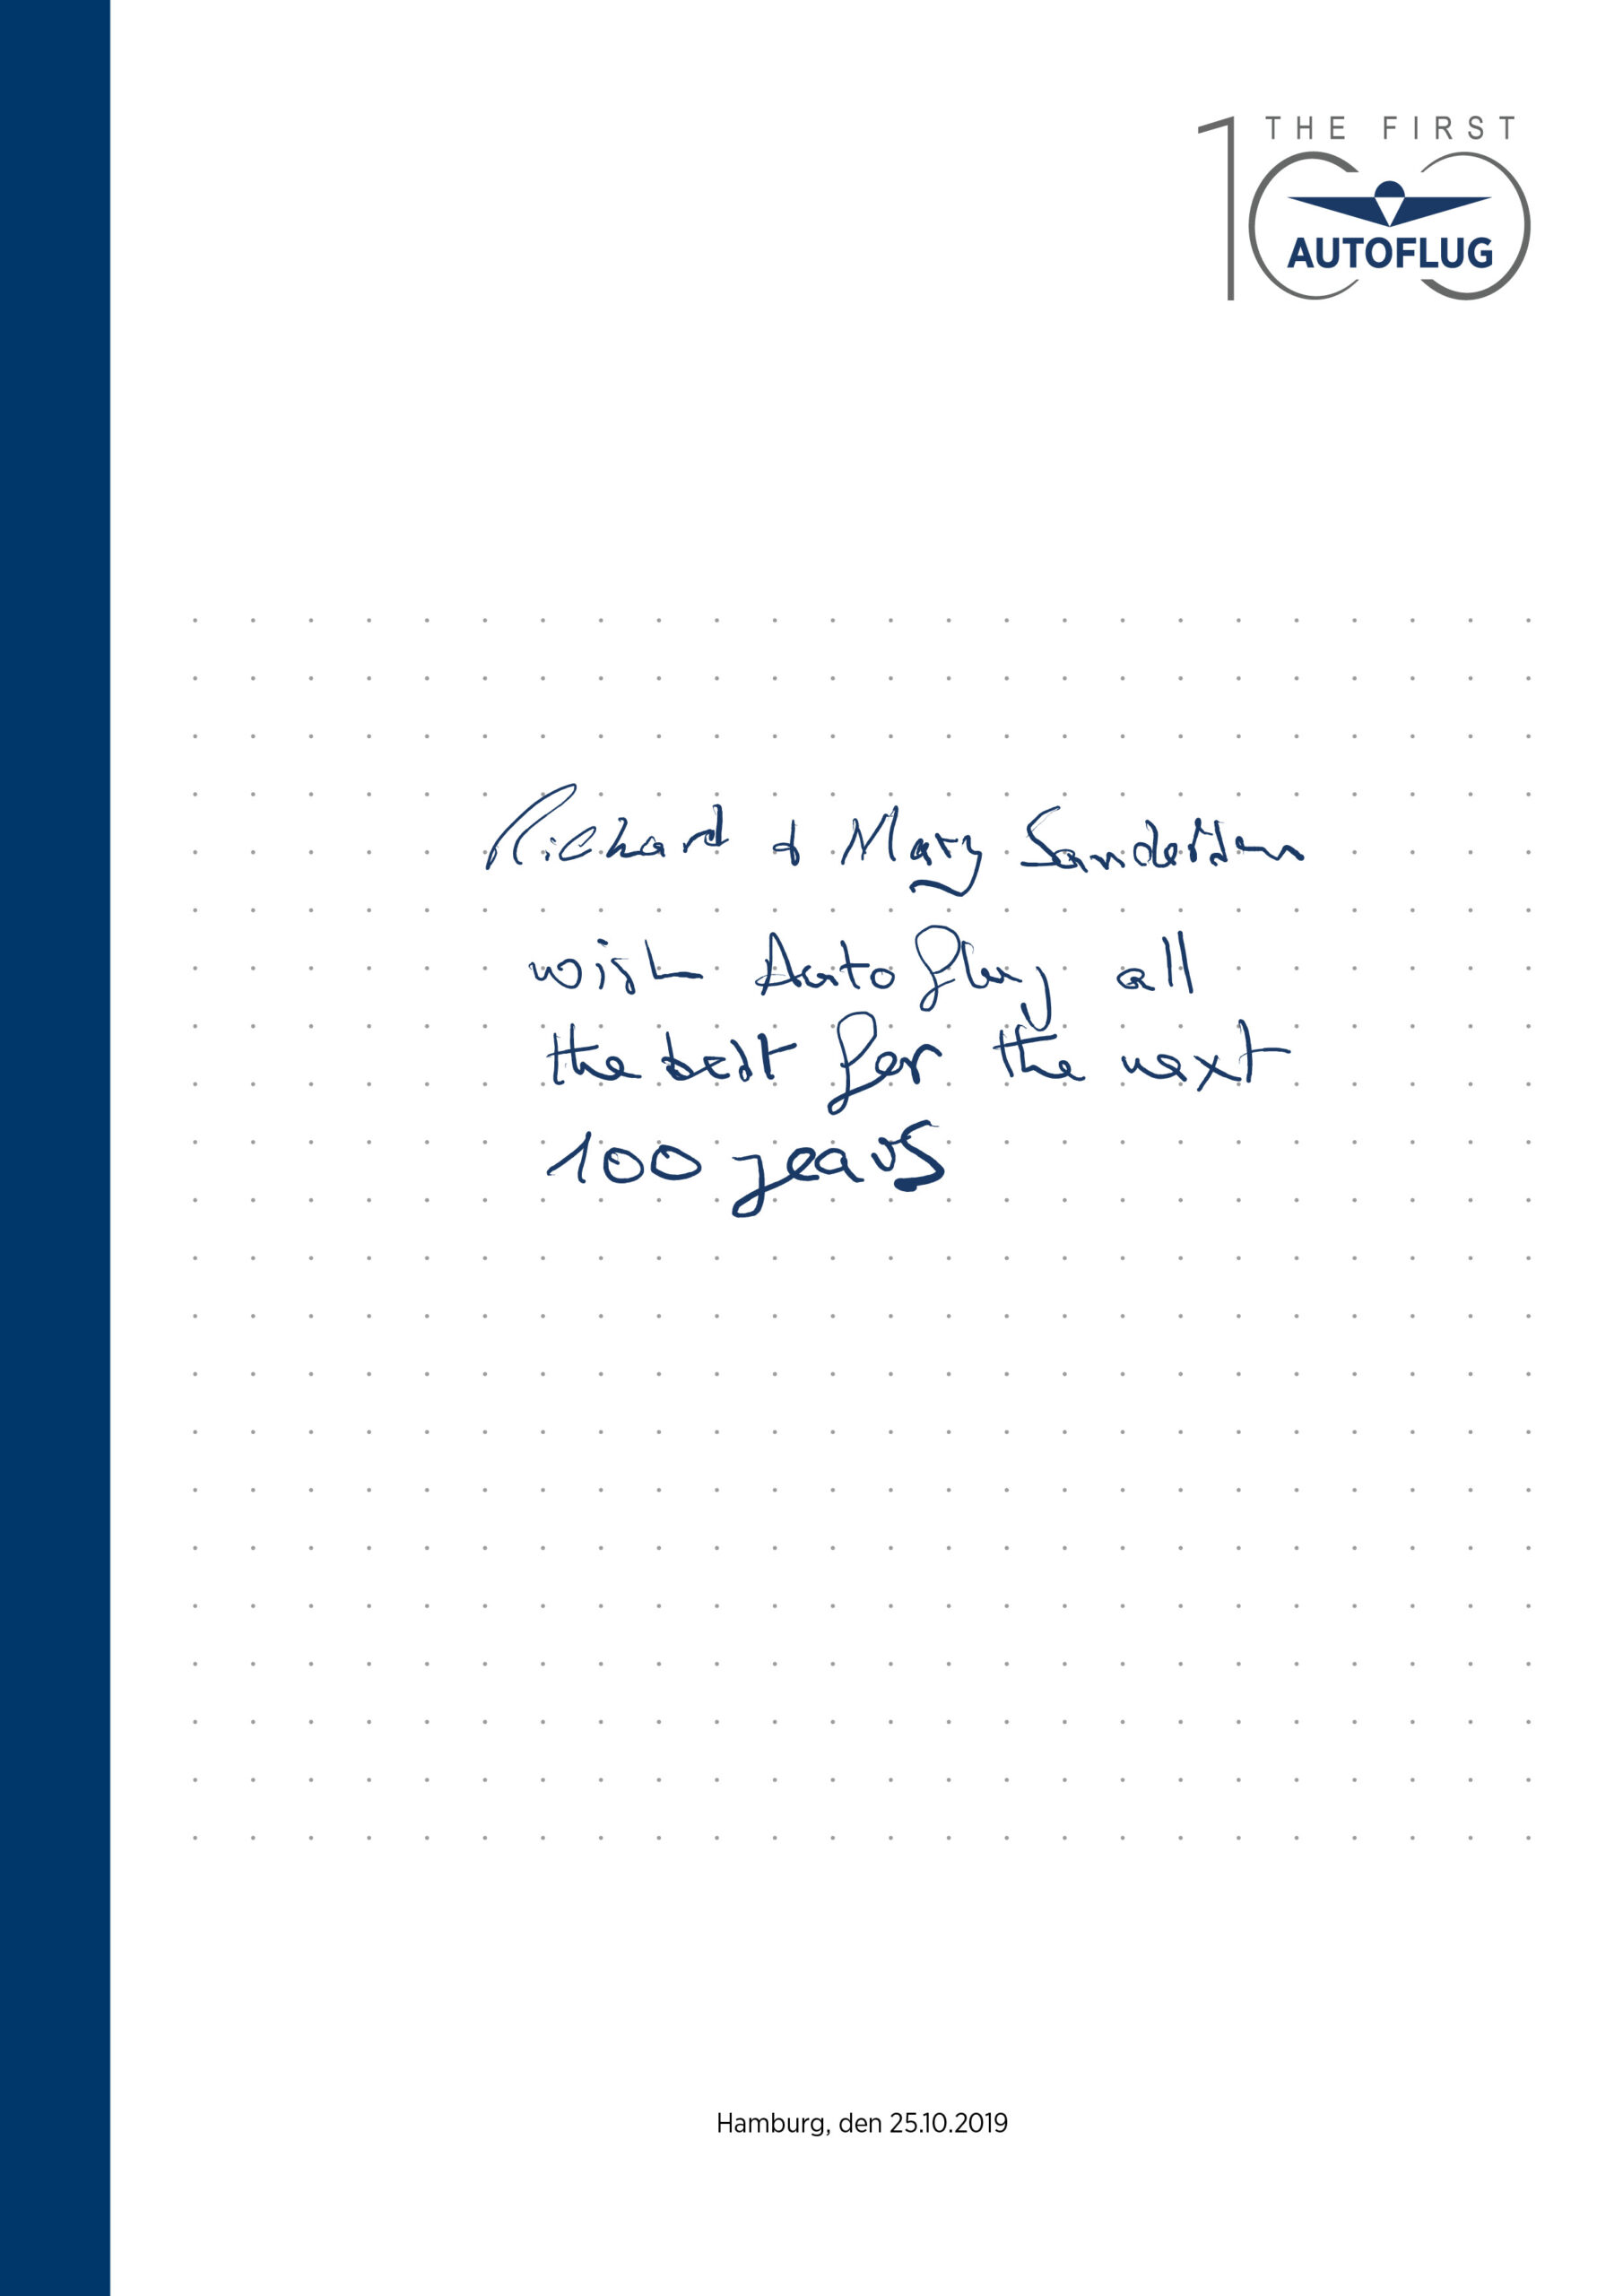 THE FIRST
100
AUTOFLUG
Richard & Mary
wish Autoflug all
the best for the next
100 years
Hamburg, den 25.10.2019